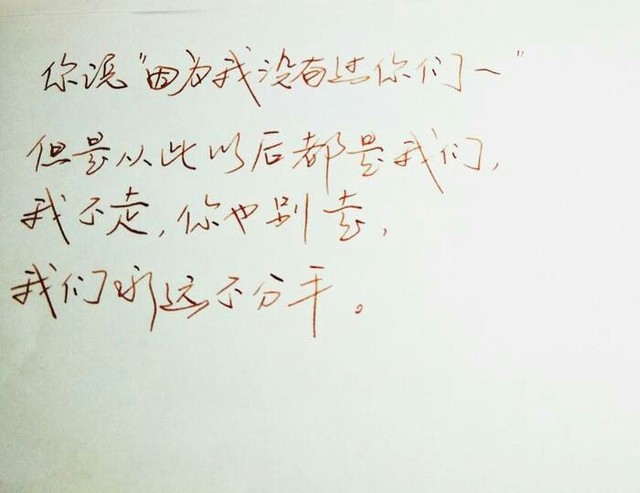 你说“因为我没有过你们～”
但是从此以后都是我们,
我不走,你也别走,
我们永远不分手。